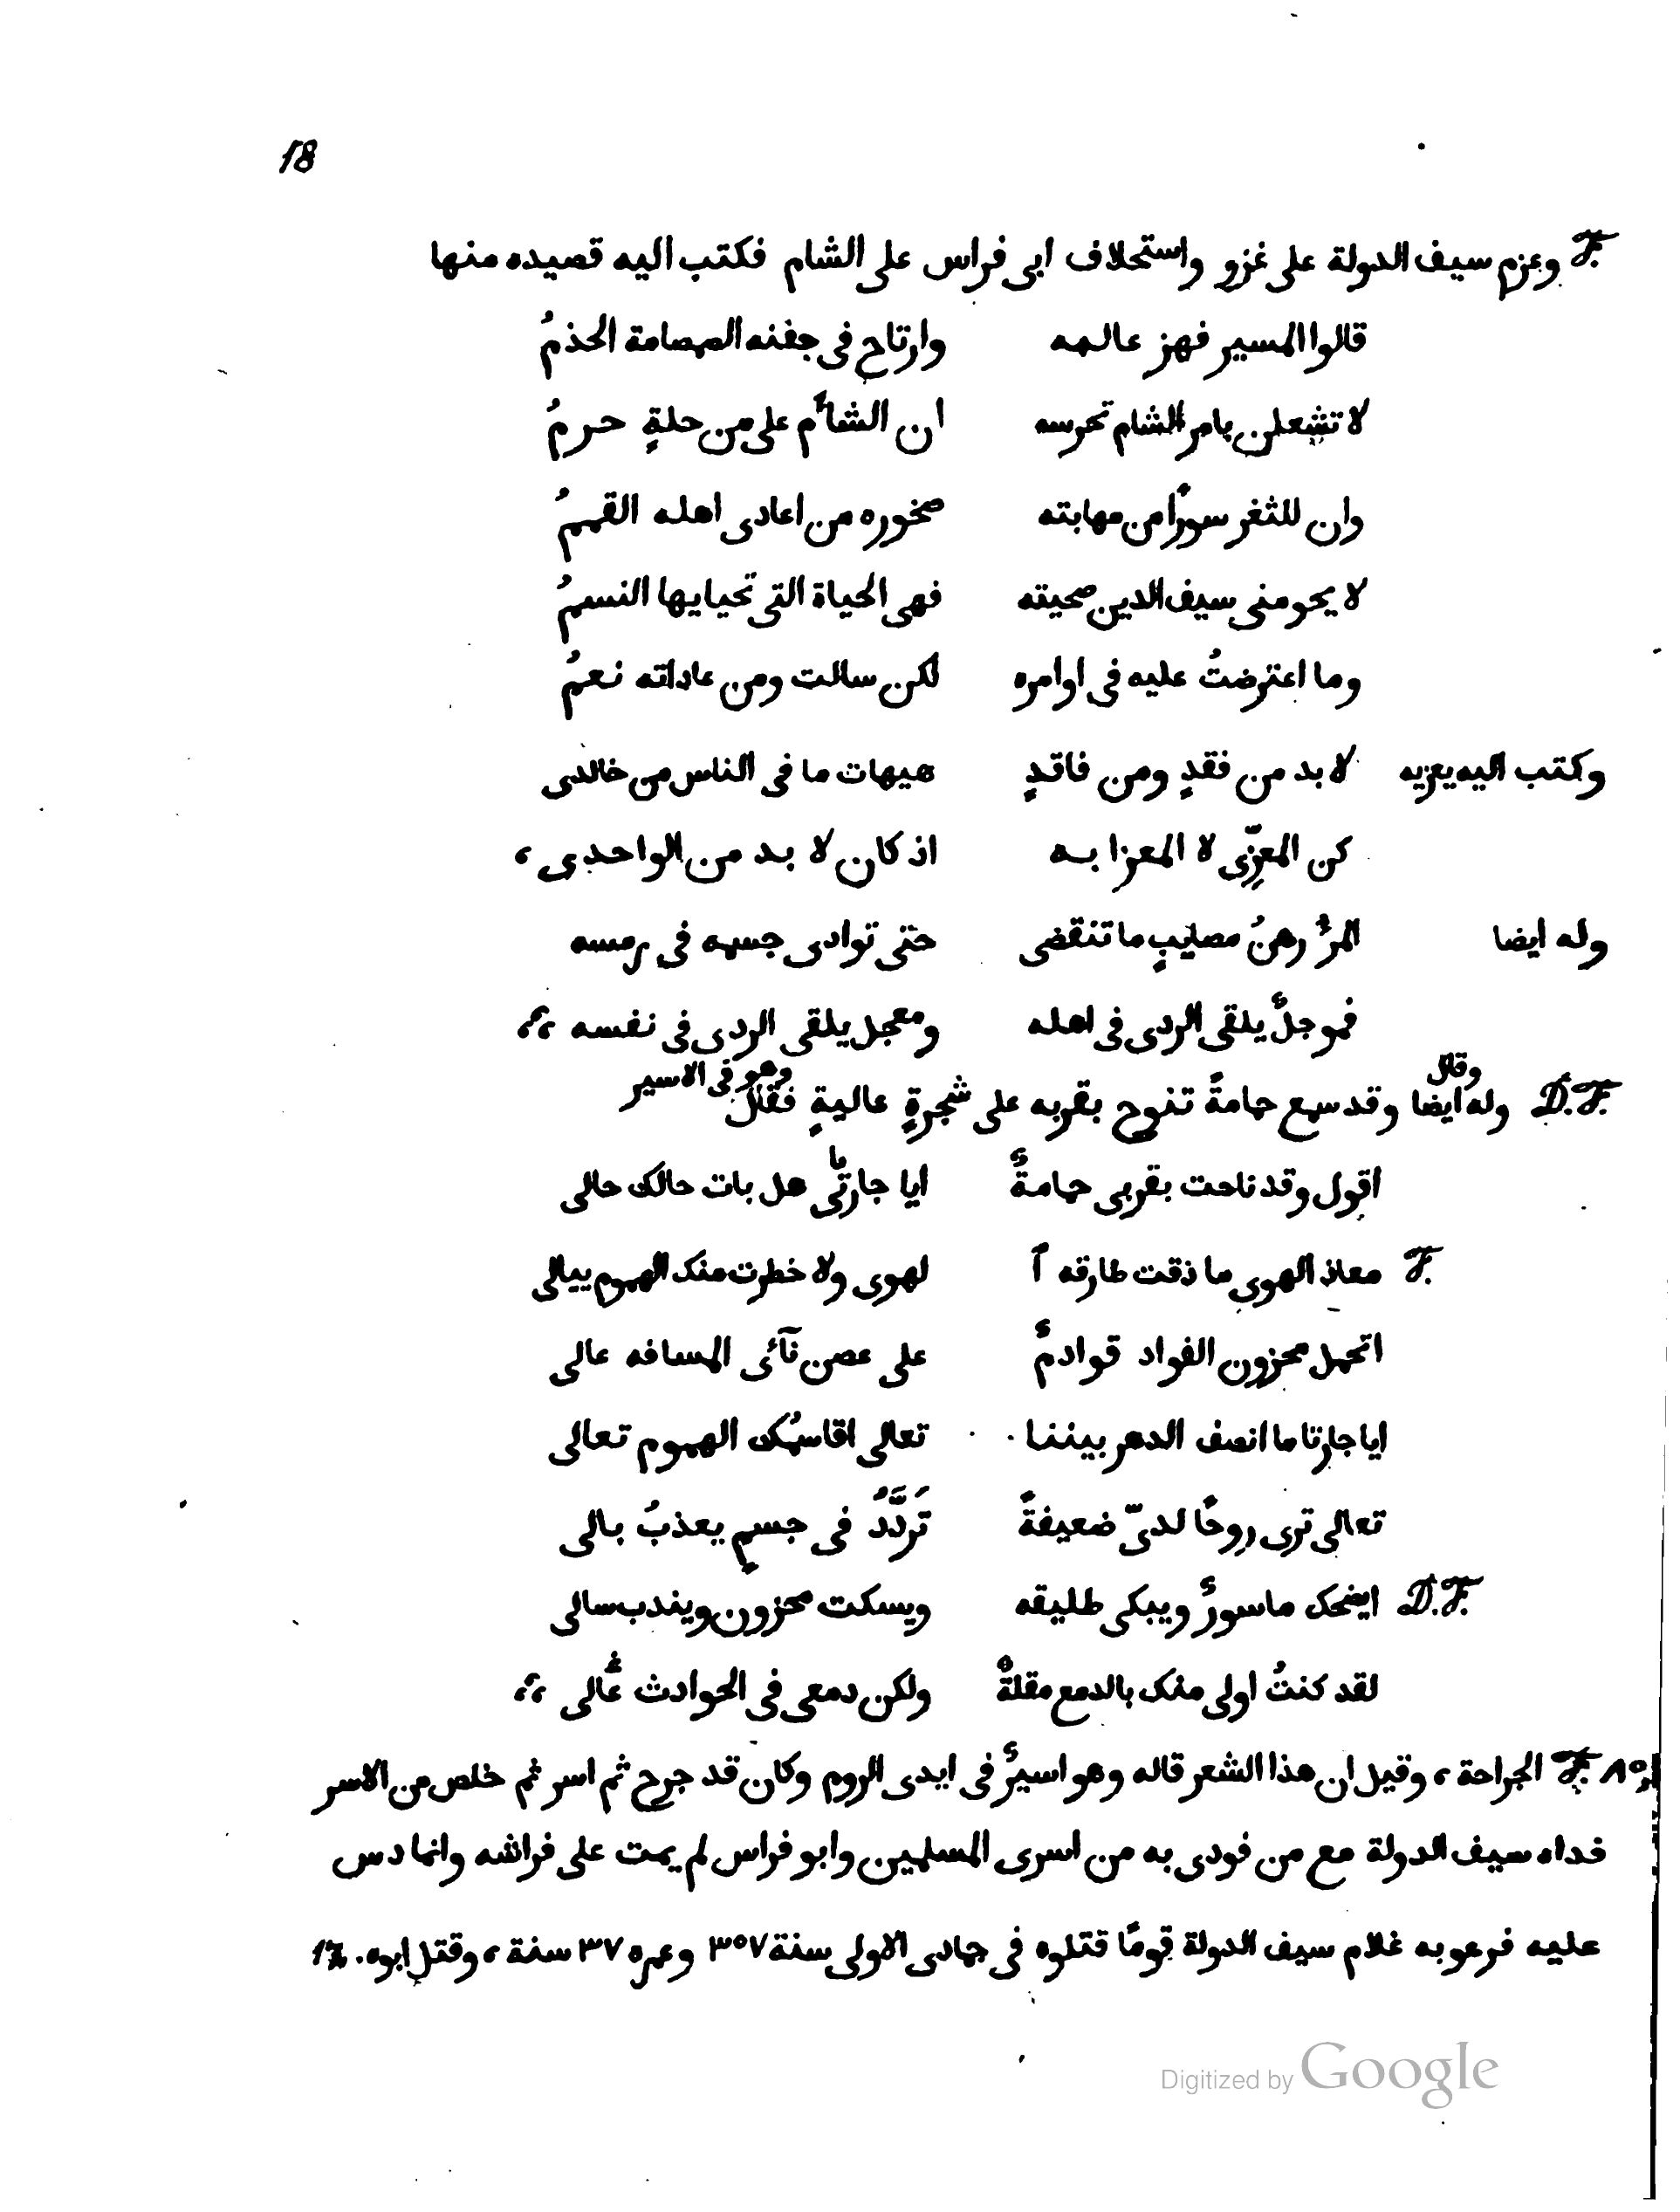 18
F. وعزم سيف الدولة على غزو واستحلاف ابى فراس على الشام فكتب اليه قصيده منها
قالوا المسير فهز عالمه وارتاح فى جفنه الصمصامة الحذمُ
لا تشعلن بامر الشام تحرسه ان الشأم على من حلةٍ حرمُ
وان للثغر سورًا من مهابته صخوره من اعادى اهله القممُ
لا يحومنى سيف الدين صحيته فهى الحياة التى تحيايها النسمُ
وما اعترضتُ عليه فى اوامره لكن سالت ومن عاداته نعمُ
وكتب اليه يعزيه لا بد من فقدٍ ومن فاقدٍ هيهات ما فى الناس من خالدى
كن المعزّى لا المعزا به اذ كان لا بد من الواحدى،
وله ايضا المرُ رهنُ مصايبٍ ما تنقضى حتى توادى جسمه فى رمسه
فموجلٌ يلقى الردى فى اهله ومعجل يلقى الردى فى نفسه ،،
وقال وهو فى الاسير
D.F. وله ايضا وقد سمع حمامةً تنوح بقربه على شجرةٍ عاليةٍ فقال
اقول وقد ناحت بقربى حمامةٌ ايا جارتى هل بات حالك حالى
F. معاذ الهوى ما ذقت طارقه آ لهوى ولا خطرت منك الهموم ببالى
اتحمل محزون الفواد قوادمٌ على عصن نآئى المسافه عالى
ايا جارتا ما انصف الدهر بيننا تعالى اقاسمُك الهموم تعالى
تعالى ترى روحًا لدىّ ضعيفةً تَردَّدُ فى جسمٍ يعذبُ بالى
D.F. ايضحك ماسورٌ ويبكى طليقه ويسكت محزون ويندب سالى
لقد كنتُ اولى منك بالدمع مقلةٌ ولكن دمعى فى الحوادث غالى ،،
F. الجراحة، وقيل ان هذا الشعر قاله وهو اسيرٌ فى ايدى الروم وكان قد جرح ثم اسر ثم خلص من الاسر
فداه سيف الدولة مع من فودى به من اسرى المسلمين وابو فراس لم يمت على فراشه وانما دس
عليه فرعوبه غلام سيف الدولة قومًا قتلوه فى جمادى الاولى سنة ٣٥٧ وعمره ٣٧ سنة، وقتل ابوه.
Digitized by Google